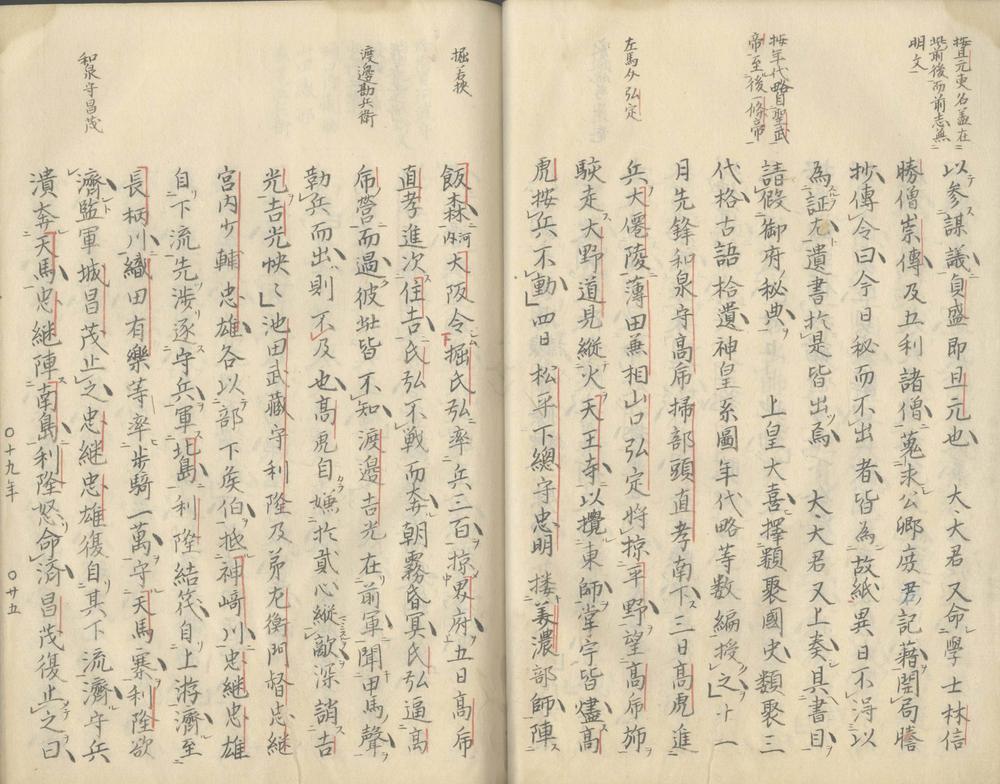 按且元更名盖在
此前後而前志無
明文
按年代略自聖武
帝至後一條帝
左馬允弘定
以参謀議貞盛即且元也 大大君又命學士林信
勝僧崇傳及五利諸僧蒐求公卿度君記藉開局謄
抄傳令曰今日秘而不出者皆為故紙異日不淂以
為証左遺書於是皆出焉 大大君又上奏具書目
請假御府秘典 上皇大喜擇類聚國史類聚三
代格古語拾遺神皇系圖年代略等数編授之十一
月先鋒和泉守高乕掃部頭直孝南下三日高虎進
兵大僊陵薄田兼相山口弘定將掠平野望高乕斾
駭走大野道見縱火天王寺以攪東師堂宇皆燼高
虎按兵不動四日松平下總守忠明摟美濃部師陣
掘右抰
渡邊勘兵衛
和泉守昌茂
飯森河内大阪令掘氏弘率兵三百掠界府五日高乕
直孝進次住吉氏弘不戦而奔朝霧昏冥氏弘過高
乕營而過彼此皆不知渡邊吉光在前軍聞甲馬聲
勒兵而出則不及也高虎自嫌於貳心縱敵深誚吉
光吉光怏々池田武藏守利隆及弟左衛門督忠継
宮内少輔忠雄各以部下矦伯抵神﨑川忠継忠雄
自下流先渉逐守兵軍北島利隆結筏自上游濟至
長柄川織田有樂等率步騎一萬守天馬寨利隆欲
濟監軍城昌茂止之忠継忠雄復自其下流濟守兵
潰奔天馬忠継陣南島利隆怒命濟昌茂復止之曰
〇十九年
〇廿五